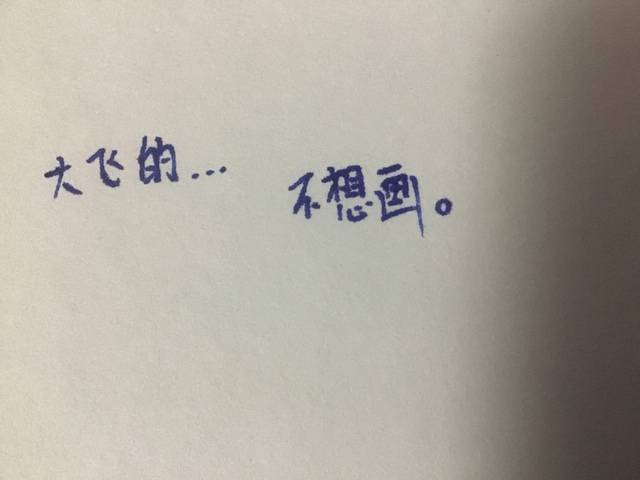 大飞的... 不想画。